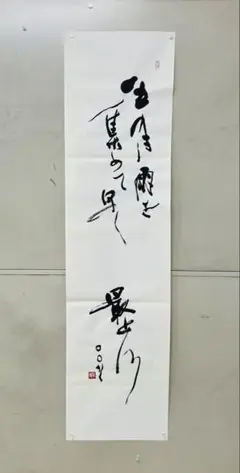 五月雨を
集めて早し
最上川